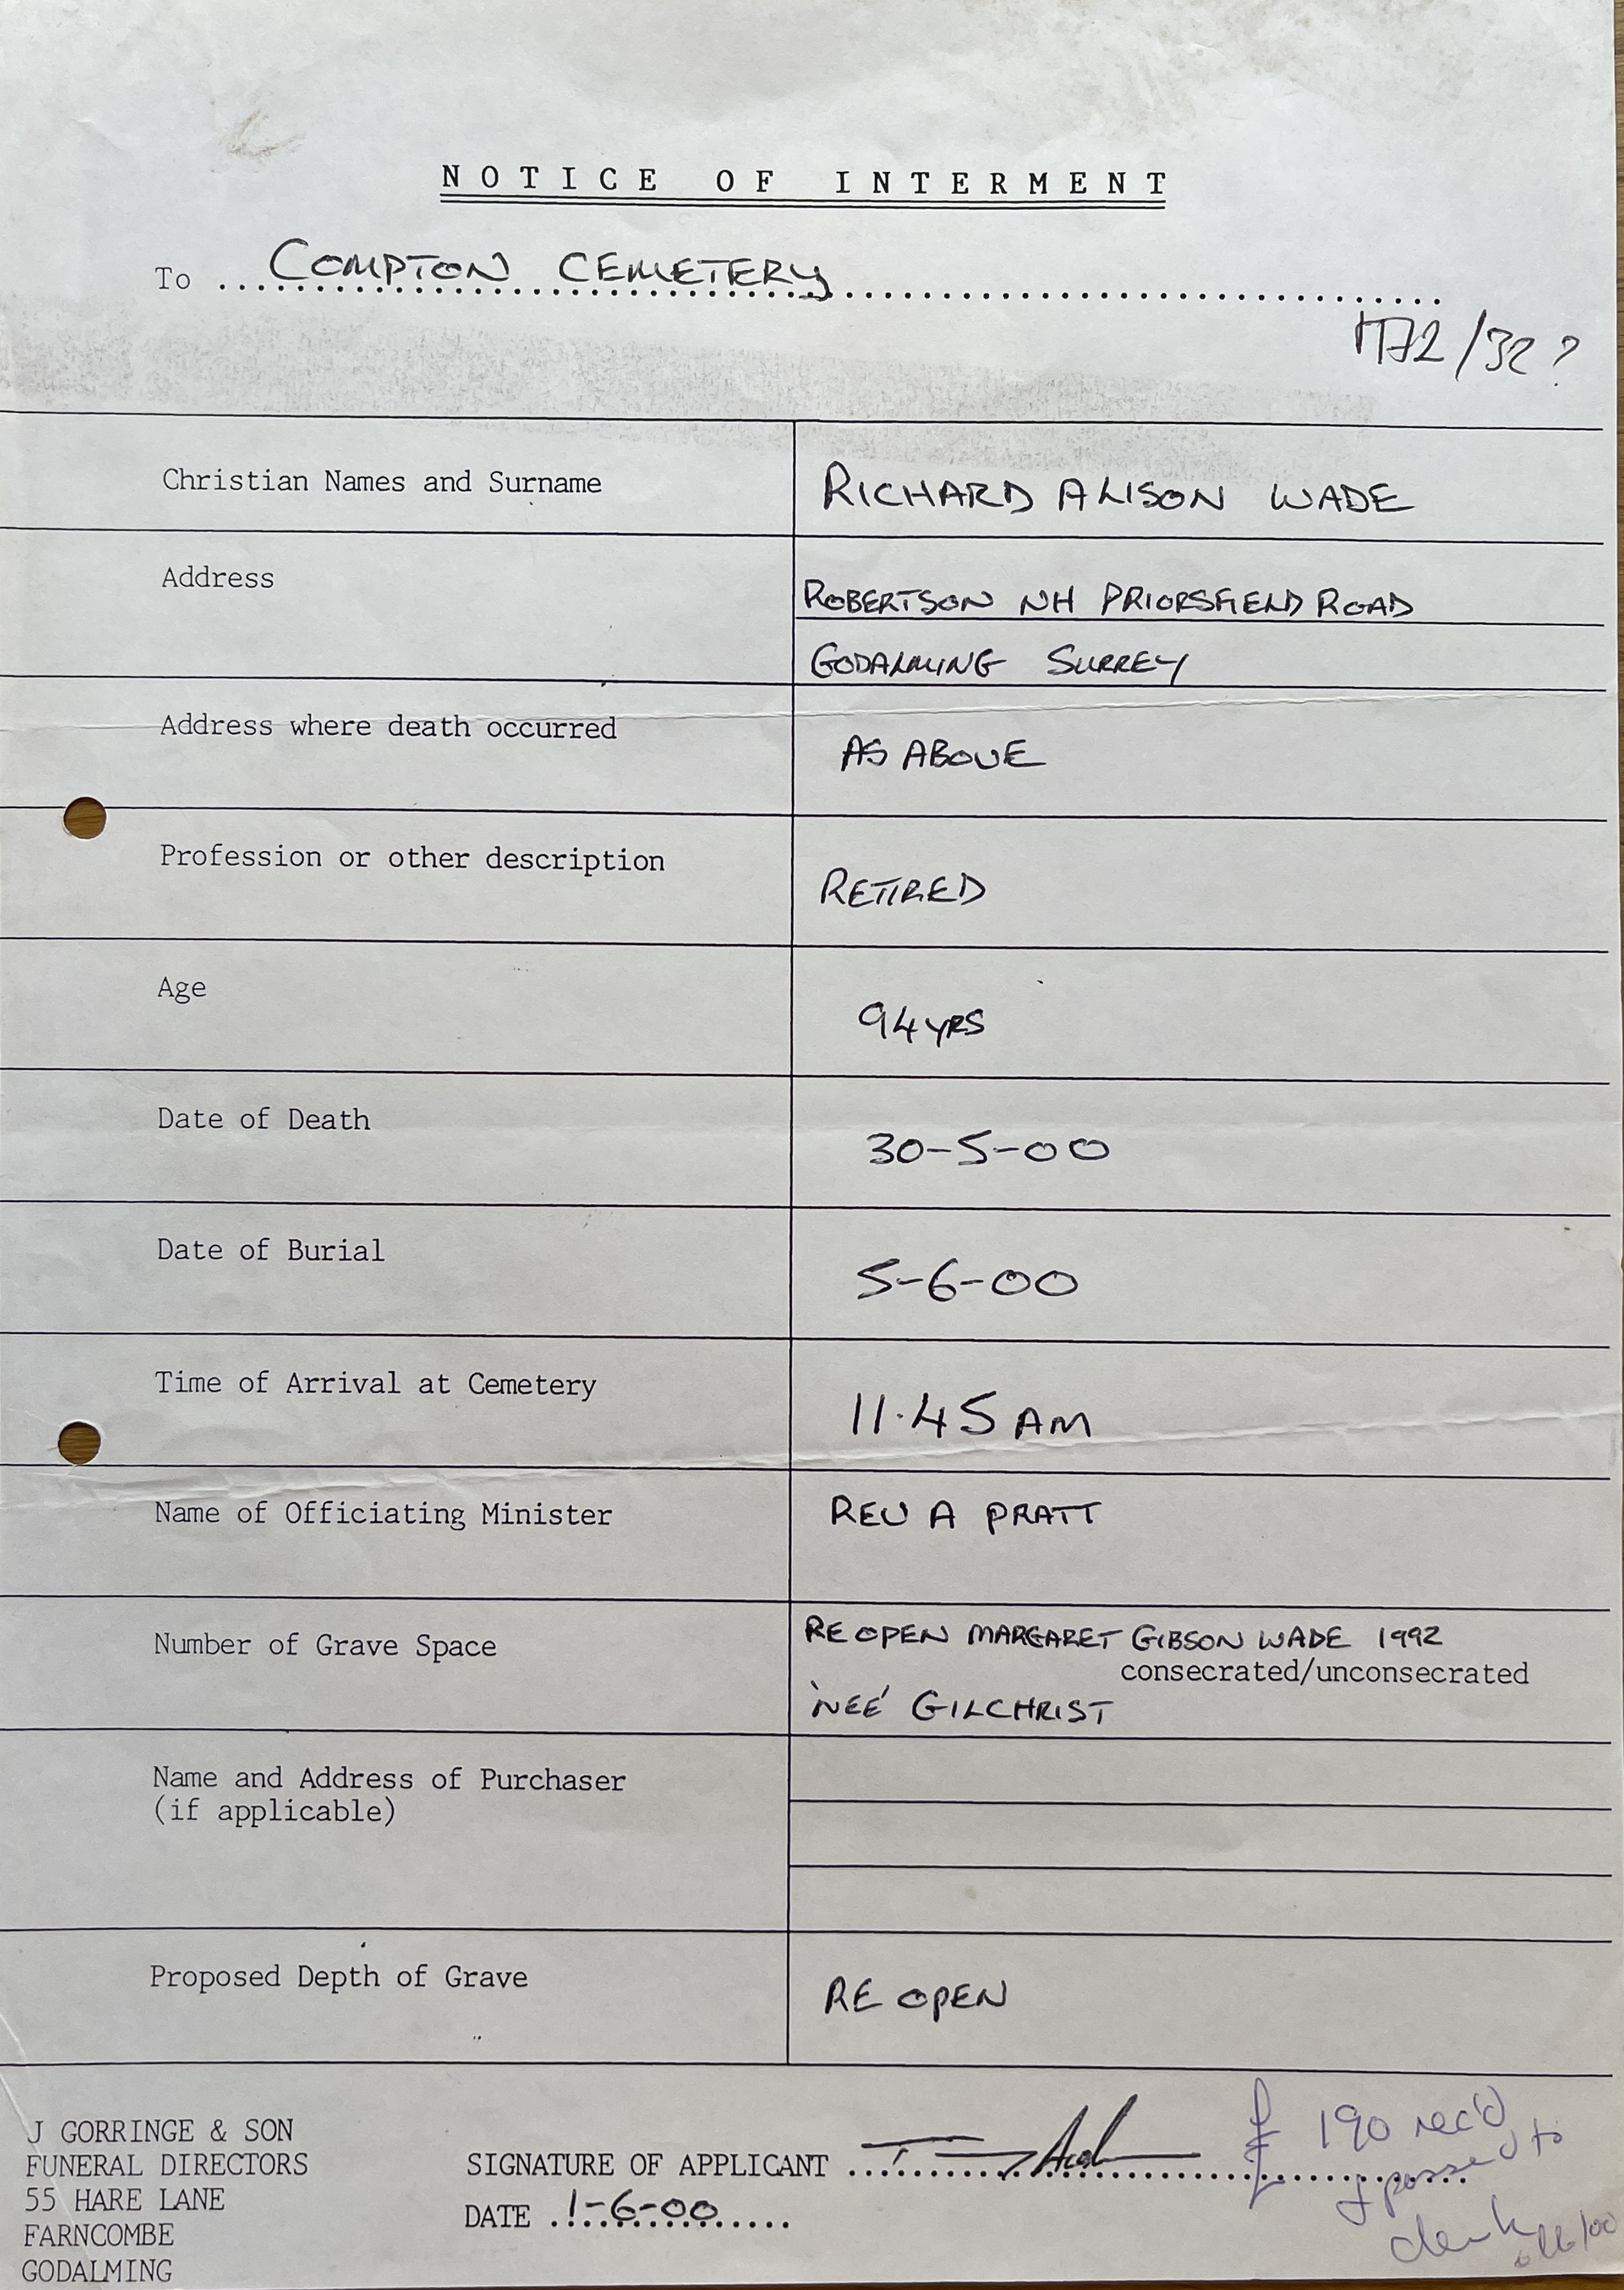 NOTICE OF INTERMENT
To COMPTON CEMETERY
/32?
Christian Names and Surname
RICHARD ALISON WADE
Address
ROBERTSON NH PRIORSFIELD ROAD
GODALMING SURREY
Address where death occurred
AS ABOVE
Profession or other description
RETIRED
Age
94 YRS
Date of Death
30-5-00
Date of Burial
5-6-00
Time of Arrival at Cemetery
11.45 AM
Name of Officiating Minister
REV A PRATT
Number of Grave Space
RE OPEN MARGARET GIBSON WADE 1992
consecrated/unconsecrated
'NEE' GILCHRIST
Name and Address of Purchaser
(if applicable)
Proposed Depth of Grave
RE OPEN
J GORRINGE & SON
FUNERAL DIRECTORS
55 HARE LANE
FARNCOMBE
GODALMING
SIGNATURE OF APPLICANT
DATE 1-6-00
£190 rec'd
& passed to
clerk